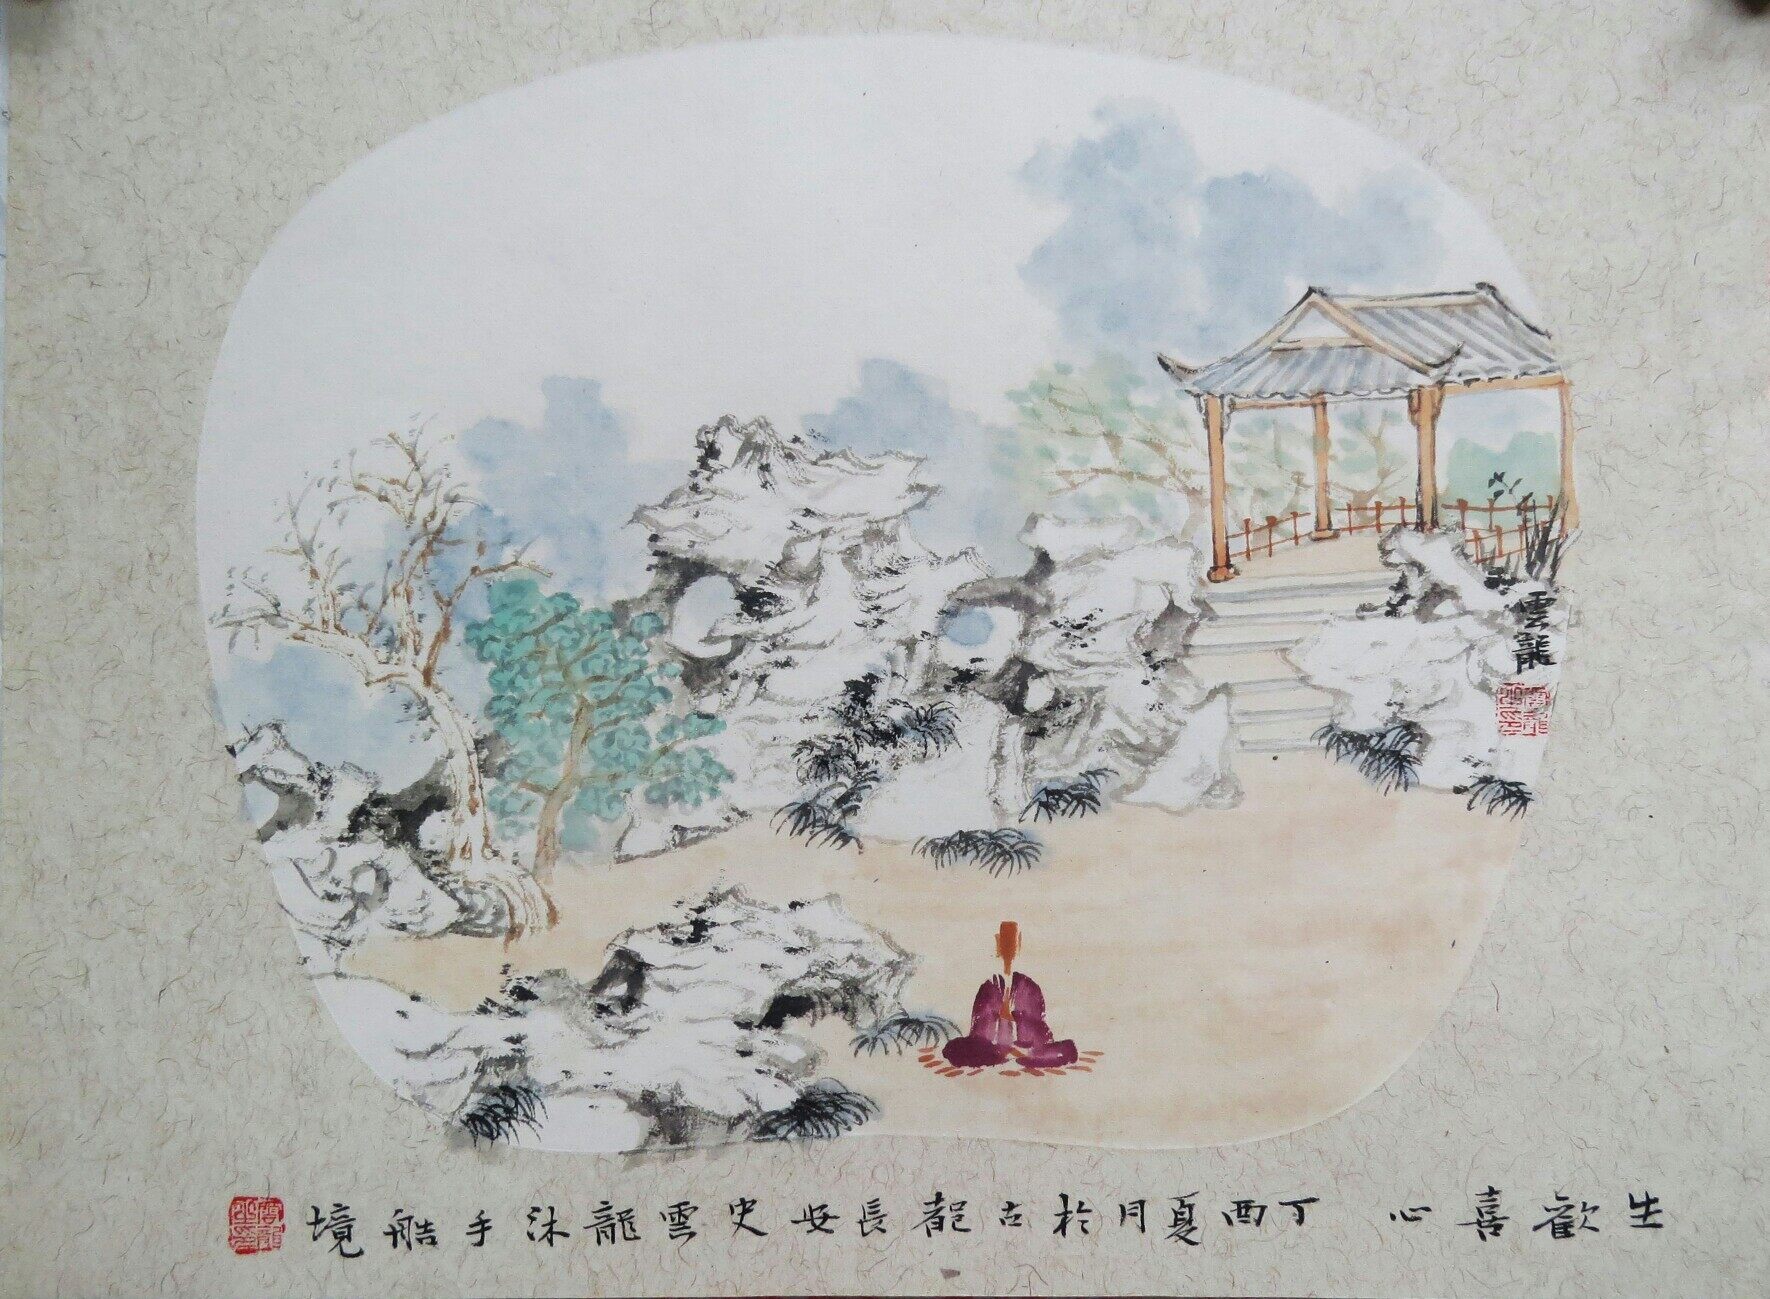 雲龍
生歡喜心 丁酉夏月於古都長安史雲龍沐手艁境